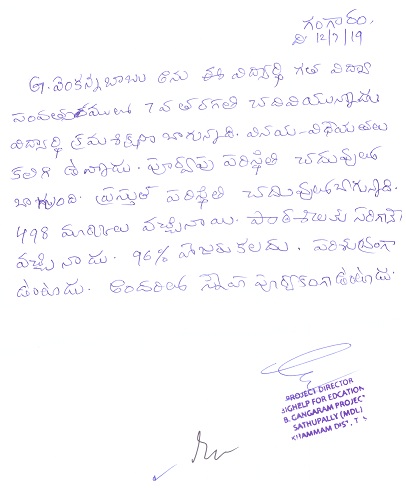 గంగారం,
ది 12/7/19
G. వెంకన్నబాబు అను ఈ విద్యార్థి గత విద్యా
సంవత్సరములు 7వ తరగతి చదివియున్నాడు
విద్యార్థి క్రమశిక్షణ బాగున్నది. వినయ-విధేయతలు
కలిగి ఉన్నాడు. పూర్వపు పరిస్థితి చదువులు
బాగుంది. ప్రస్తుత పరిస్థితి చదువులు బాగున్నది.
498 మార్కులు వచ్చినాయి. పాఠశాలకు సరిగానే
వచ్చినాడు. 96% హాజరు కలదు. పరిశుభ్రంగా
ఉంటాడు. అందరితో స్నేహ పూర్వకంగా ఉంటాడు.
PROJECT DIRECTOR
SIGHELP FOR EDCATION
B. GANGARAM PROJECT
SATHUPALLY (MDL)
KHAMMAM DIST, T S